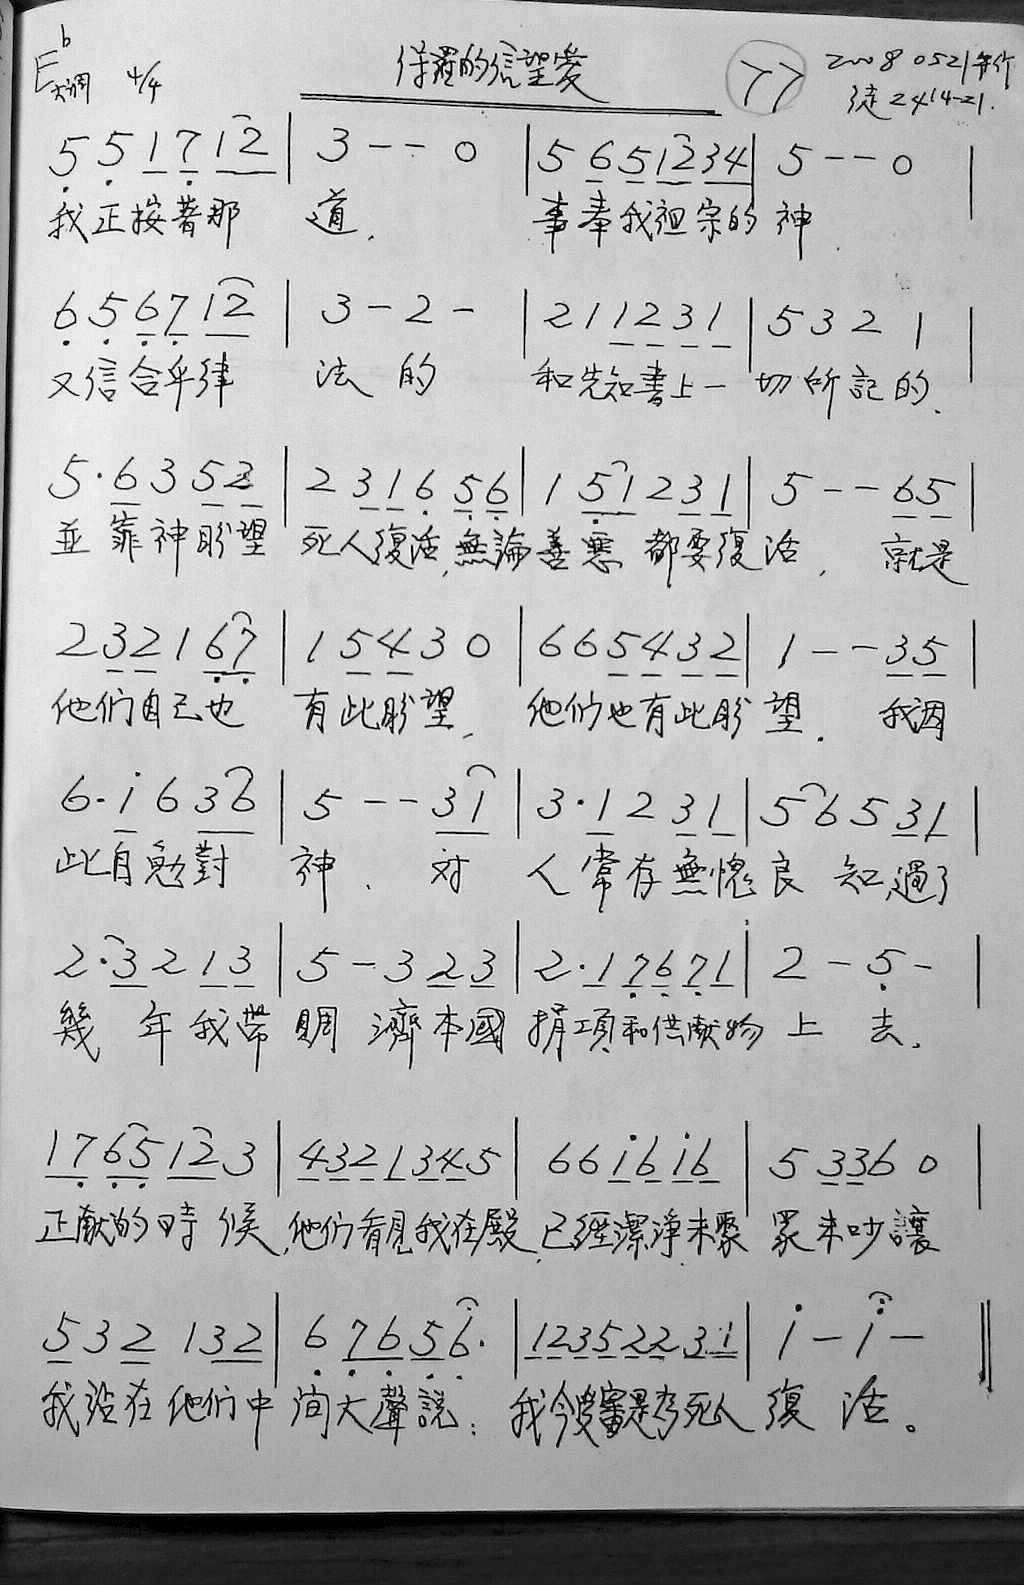 E♭大调 4/4 保羅的信望愛 77 20080521 徒24 14-21.
5 5 1 7 1 2 | 3 - - 0 | 5 6 5 1 2 3 4 | 5 - - 0 |
我正按著那 道. 事奉我祖宗的 神.
6 5 6 7 1 2 | 3 - 2 - | 2 1 1 2 3 1 | 5 3 2 1 |
又信合乎律 法的 和先知書上一 切所記的.
5 · 6 3 5 2 | 2 3 1 6 5 6 | 1 5 1 2 3 1 | 5 - - 6 5 |
並靠神盼望 死人復活,無論 善惡都要復 活, 就是
2 3 2 1 6 7 | 1 5 4 3 0 | 6 6 5 4 3 2 | 1 - - 3 5 |
他们自己也 有此盼望, 他们也有此盼 望. 我因
6 · i 6 3 6 | 5 - - 3 1 | 3 · 1 2 3 1 | 5 6 5 3 1 |
此自勉對 神、对 人常存無愧 良知,過了
2 · 3 2 1 3 | 5 - 3 2 3 | 2 · 1 7 6 7 1 | 2 - 5 - |
幾年我帶 賙濟本國 捐項和供献物 上去.
1 7 6 5 1 2 3 | 4 3 2 1 3 4 5 | 6 6 i 6 i 6 | 5 3 3 6 0 |
正献的時候, 他们看見我在殿, 已經潔淨未聚 眾未吵讓
5 3 2 1 3 2 | 6 7 6 5 6 · | 1 2 3 5 2 2 3 · i | i - i - ||
我站在他们中 间大聲説: 我今受審是为死人 復活。